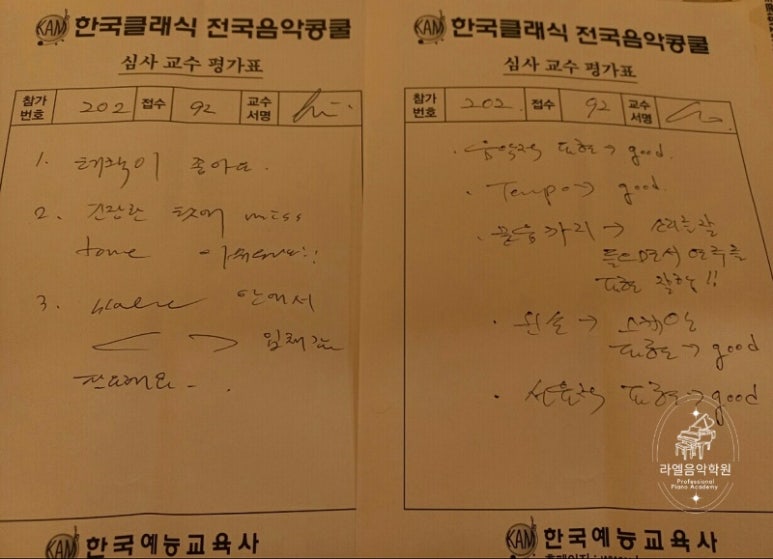 KAM 한국클래식 전국음악콩쿨
심사 교수 평가표
참가번호 202 접수 92 교수서명
1. 테크닉이 좋아요.
2. 긴장한 탓에 miss
tone 아쉬워요!!
3. 안에서
입체감
필요해요 - .
KAM 한국예능교육사
KAM 한국클래식 전국음악콩쿨
심사 교수 평가표
참가번호 202. 접수 92 교수서명
· 음악적 표현 → good.
· Tempo → good.
· 끝음 처리 → 소리를 잘
들으면서 연주를
표현 잘함!!
· 왼손 → 스케일
표현 → good
· 표현 → good
라엘음악학원
Professional
Piano Academy
KAM 한국예능교육사